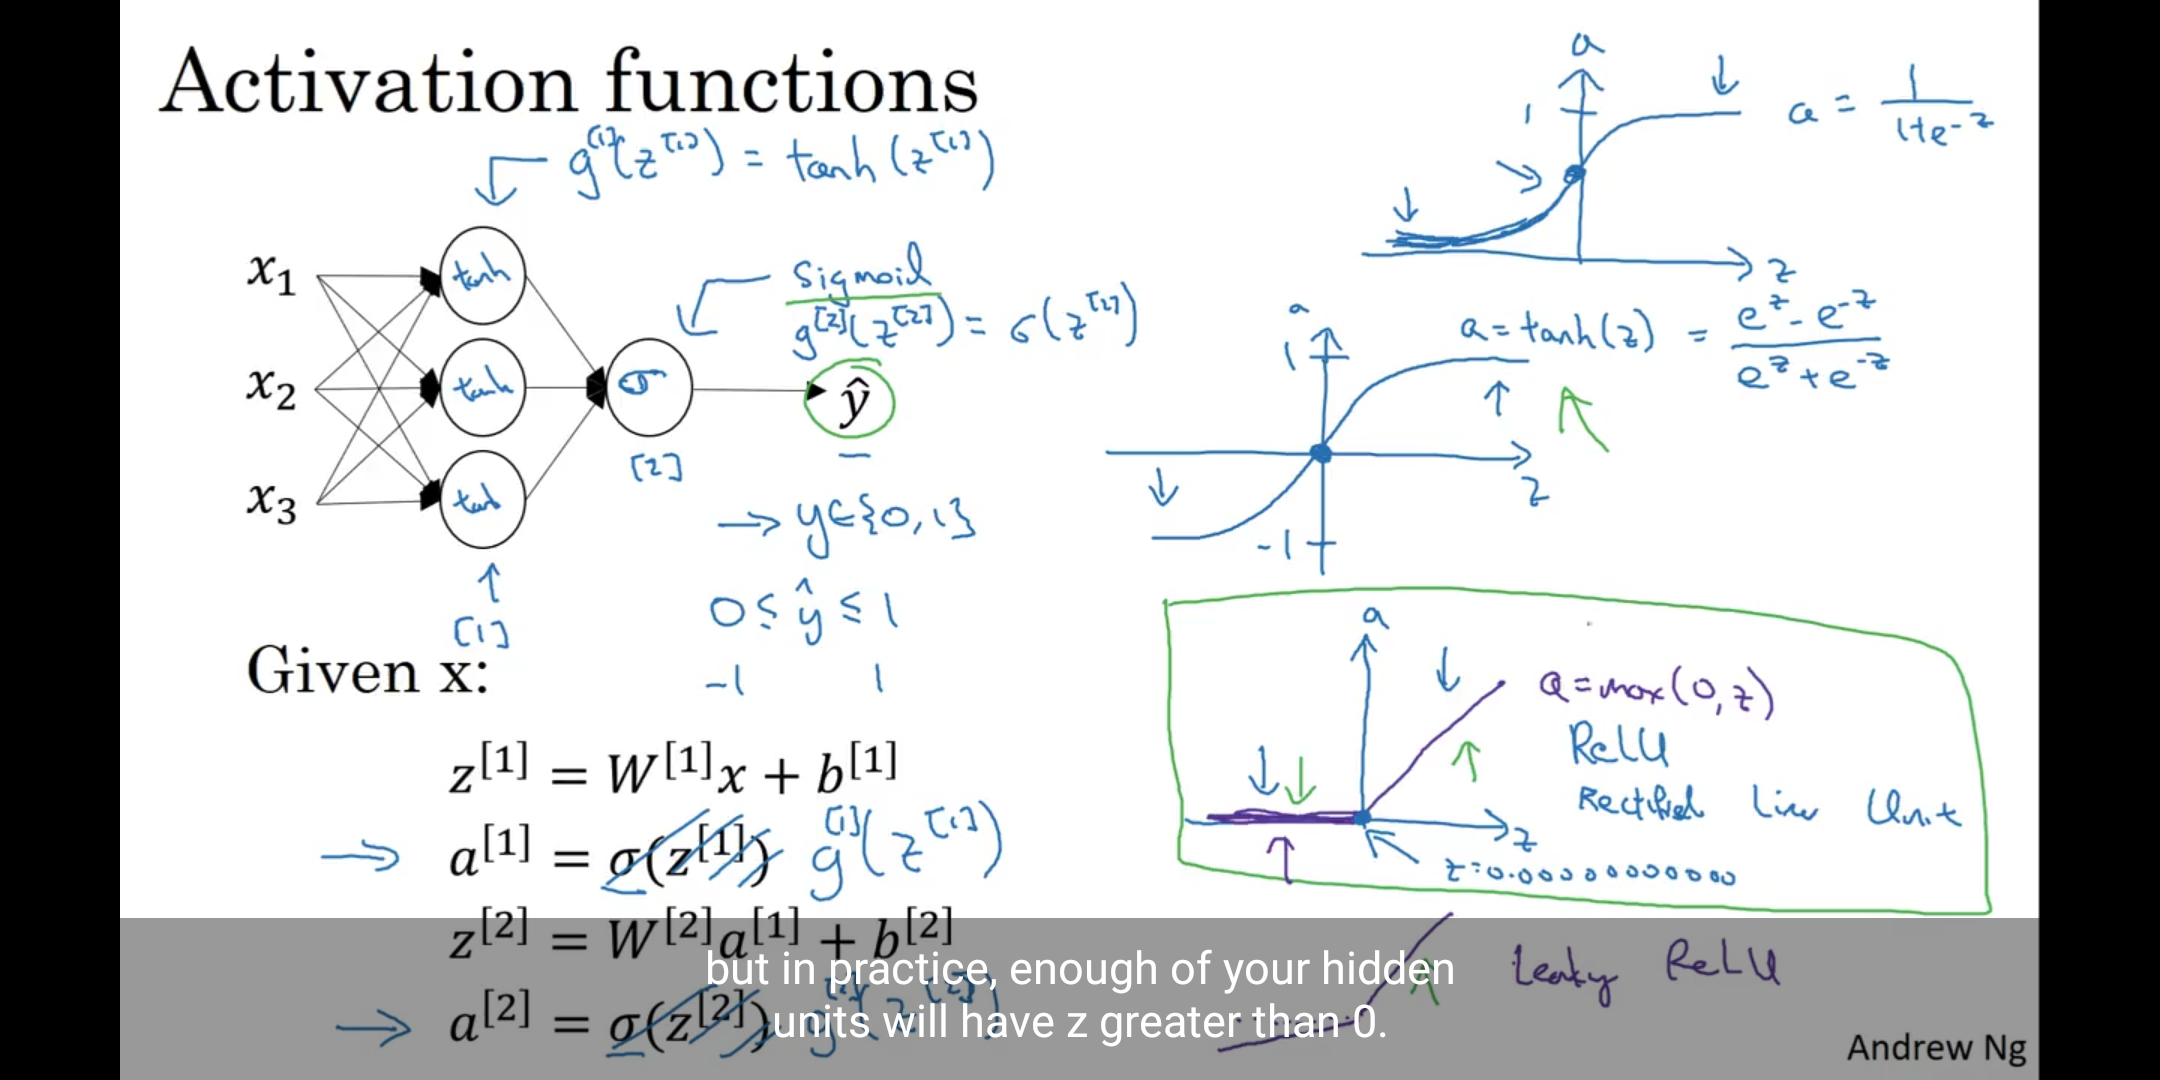 Activation functions
g^[1](z^[1]) = tanh(z^[1])
x₁
x₂
x₃
tanh
tanh
tanh
[1]
sigmoid
g^[2](z^[2]) = σ(z^[2])
σ
[2]
ŷ
→ y∈{0,1}
0 ≤ ŷ ≤ 1
-1 1
Given x:
z^[1] = W^[1]x + b^[1]
→ a^[1] = σ(z^[1]) g^[1](z^[1])
z^[2] = W^[2]a^[1] + b^[2]
→ a^[2] = σ(z^[2]) g^[2](z^[2])
a
1
z
a = 1/(1+e^-z)
a
1
-1
z
a = tanh(z) = (e^z - e^-z)/(e^z + e^-z)
a
z
a = max(0,z)
ReLU
Rectified Linear Unit
z=0.00000000000
Leaky ReLU
but in practice, enough of your hidden
units will have z greater than 0.
Andrew Ng